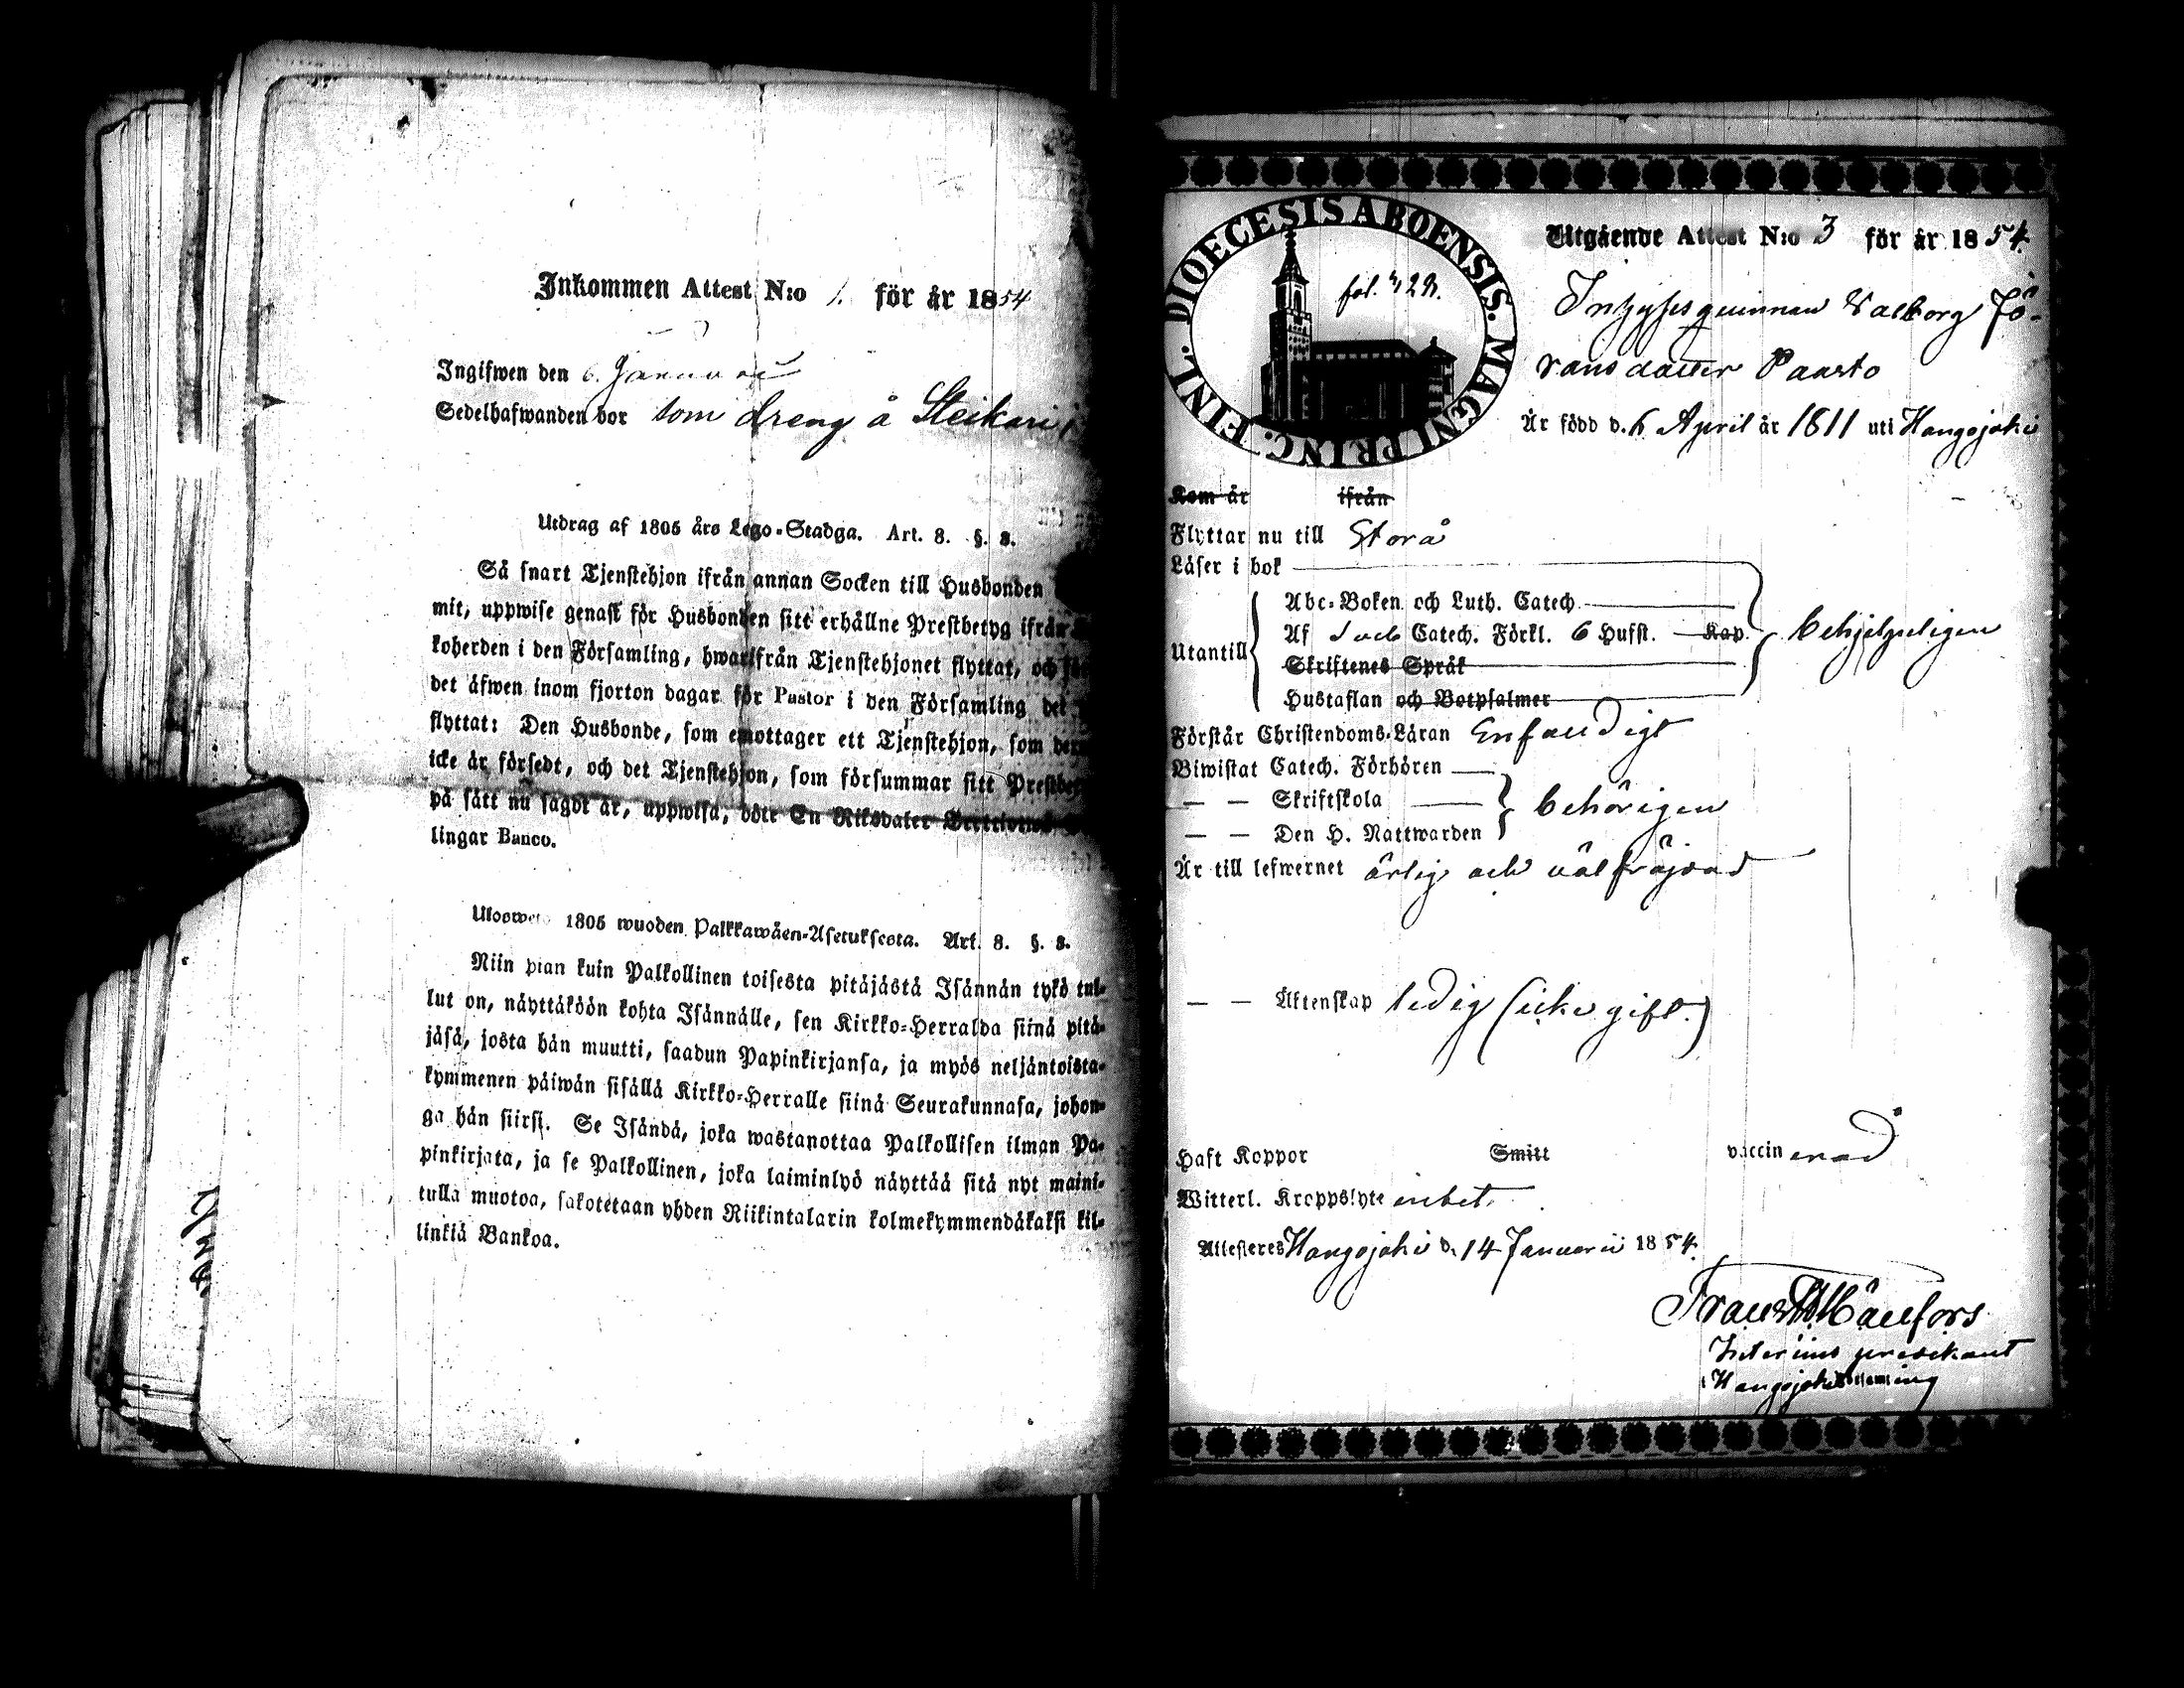 Inkommen Attest N:o 1. för år 1854
Ingifwen den 6. Januarii
Sedelhafwanden bor som dreng å Steikari
Utdrag af 1805 års Lego-Stadga. Art. 8. §. 8.
Så snart Tjenstehjon ifrån annan Socken till Husbonden
mit, uppwise genast för Husbonden sitt erhållne Prestbetyg ifrån
koherden i den Församling, hwarifrån Tjenstehjonet flyttat, och
det äfwen inom fjorton dagar för Pastor i den Församling det
flyttat: Den Husbonde, som emottager ett Tjenstehjon, som der
icke är försedt, och det Tjenstehjon, som försummar sitt Prestbe
på sätt nu sagdt är, uppwisa, böte En Riksdaler
lingar Banco.
Ulosweto 1805 wuoden Palkkawäen-Asetuksesta. Art. 8. §. 8.
Niin pian kuin Palkollinen toisesta pitäjästä Isännän tykö tul-
lut on, näyttäköön kohta Isännälle, sen Kirkko-Herralda siinä pitä-
jäsä, josta hän muutti, saadun Papinkirjansa, ja myös neljäntoista-
kymmenen päiwän sisällä Kirkko-Herralle siinä Seurakunnasa, johon-
ga hän siirsi. Se Isändä, joka wastanottaa Palkollisen ilman Pa-
pinkirjata, ja se Palkollinen, joka laiminlyö näyttää sitä nyt maini-
tulla muotoa, sakotetaan yhden Riikintalarin kolmekymmendäkaksi kil-
linkiä Bankoa.
DIOECESIS ABOENSIS. MAGNI PRINC. FINL.
Utgående Attest N:o 3 för år 1854.
Inhysesquinnan Valborg Jö-
ransdatter Paasto
Är född d. 6 April år 1811 uti Hongojoki
Kom år ifrån
Flyttar nu till Storå
Läser i bok
Abc-Boken och Luth. Catech.
Af Catech. Förkl. 6 Hufst. Kap.
Utantill
behjelpeligen
Skriftenes Språk
Hustaflan och Botpsalmer
Förstår Christendoms-Läran Enfaldigt
Biwistat Catech. Förhören
— — Skriftskola
behörigen
— — Den H. Nattwarden
Är till lefwernet ärlig och välfräjdad
— — Äktenskap ledig (icke gift.)
Haft Koppor Smitt vaccinerad
Witterl. Kroppslyte intet.
Attesteres Hongojoki d. 14 Januarii 1854.
Interims predikant